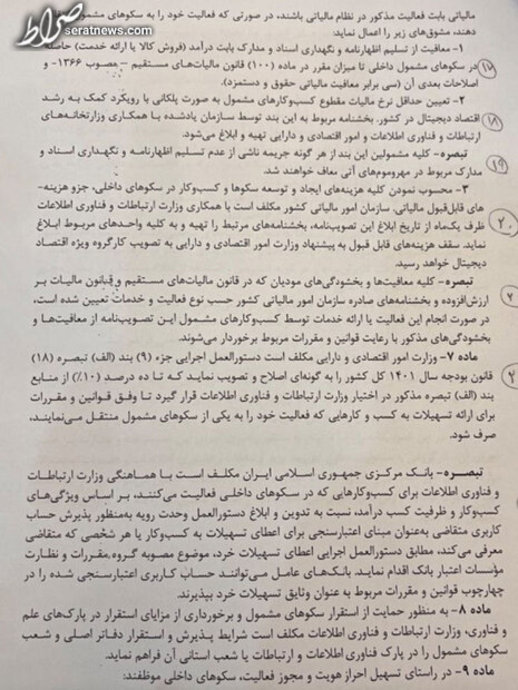 صراط
seratnews.com
مالیاتی بابت فعالیت مذکور در نظام مالیاتی باشند، در صورتی که فعالیت خود را به سکوهای مشمول
دهند، مشوق‌های زیر را اعمال نماید:
۱- معافیت از تسلیم اظهارنامه و نگهداری اسناد و مدارک بابت درآمد (فروش کالا یا ارائه خدمت) حاصله
در سکوهای مشمول داخلی تا میزان مقرر در ماده (۱۰۰) قانون مالیات‌های مستقیم – مصوب ۱۳۶۶- و
اصلاحات بعدی آن (سی برابر معافیت مالیاتی حقوق و دستمزد).
۲- تعیین حداقل نرخ مالیات مقطوع کسب‌وکارهای مشمول به صورت پلکانی با رویکرد کمک به رشد
اقتصاد دیجیتال در کشور. بخشنامه مربوط به این بند توسط سازمان یادشده با همکاری وزارتخانه‌های
ارتباطات و فناوری اطلاعات و امور اقتصادی و دارایی تهیه و ابلاغ می‌شود.
تبصره- کلیه مشمولین این بند از هر گونه جریمه ناشی از عدم تسلیم اظهارنامه و نگهداری اسناد و
مدارک مربوط در مهروموم‌های آتی معاف خواهند شد.
۳- محسوب نمودن کلیه هزینه‌های ایجاد و توسعه سکوها و کسب‌وکار در سکوهای داخلی، جزو هزینه-
های قابل‌قبول مالیاتی. سازمان امور مالیاتی کشور مکلف است با همکاری وزارت ارتباطات و فناوری اطلاعات
ظرف یک‌ماه از تاریخ ابلاغ این تصویب‌نامه، بخشنامه‌های مرتبط را تهیه و به کلیه واحدهای مربوط ابلاغ
نماید. سقف هزینه‌های قابل قبول به پیشنهاد وزارت امور اقتصادی و دارایی به تصویب کارگروه ویژه اقتصاد
دیجیتال خواهد رسید.
تبصره- کلیه معافیت‌ها و بخشودگی‌های مودیان که در قانون مالیات‌های مستقیم و قانون مالیات بر
ارزش‌افزوده و بخشنامه‌های صادره سازمان امور مالیاتی کشور حسب نوع فعالیت و خدمات تعیین شده است،
در صورت انجام این فعالیت یا ارائه خدمات توسط کسب‌وکارهای مشمول این تصویب‌نامه از معافیت‌ها و
بخشودگی‌های مذکور با رعایت قوانین و مقررات مربوط برخوردار می‌شوند.
ماده ۷- وزارت امور اقتصادی و دارایی مکلف است دستورالعمل اجرایی جزء (۹) بند (الف) تبصره (۱۸)
قانون بودجه سال ۱۴۰۱ کل کشور را به گونه‌ای اصلاح و تصویب نماید که تا ده درصد (۱۰٪) از منابع
بند (الف) تبصره مذکور در اختیار وزارت ارتباطات و فناوری اطلاعات قرار گیرد تا وفق قوانین و مقررات
برای ارائه تسهیلات به کسب و کارهایی که فعالیت خود را به یکی از سکوهای مشمول منتقل می‌نمایند،
صرف شود.
تبصره- بانک مرکزی جمهوری اسلامی ایران مکلف است با هماهنگی وزارت ارتباطات
و فناوری اطلاعات برای کسب‌وکارهایی که در سکوهای داخلی فعالیت می‌کنند، بر اساس ویژگی‌های
کسب‌وکار و ظرفیت کسب درآمد، نسبت به تدوین و ابلاغ دستورالعمل وحدت رویه به‌منظور پذیرش حساب
کاربری متقاضی به‌عنوان مبنای اعتبارسنجی برای اعطای تسهیلات به کسب‌وکار یا هر شخصی که متقاضی
معرفی می‌کند، مطابق دستورالعمل اجرایی اعطای تسهیلات خرد، موضوع مصوبه گروه مقررات و نظارت
مؤسسات اعتبار بانک اقدام نماید. بانک‌های عامل می‌توانند حساب کاربری اعتبارسنجی شده را در
چهارچوب قوانین و مقررات مربوط به عنوان وثایق تسهیلات خرد بپذیرند.
ماده ۸- به منظور حمایت از استقرار سکوهای مشمول و برخورداری از مزایای استقرار در پارک‌های علم
و فناوری، وزارت ارتباطات و فناوری اطلاعات مکلف است شرایط پذیرش و استقرار دفاتر اصلی و شعب
سکوهای مشمول را در پارک فناوری اطلاعات و ارتباطات یا شعب استانی آن فراهم نماید.
ماده ۹- در راستای تسهیل احراز هویت و مجوز فعالیت، سکوهای داخلی موظفند:
۱۷
۱۸
۱۹
۲۰